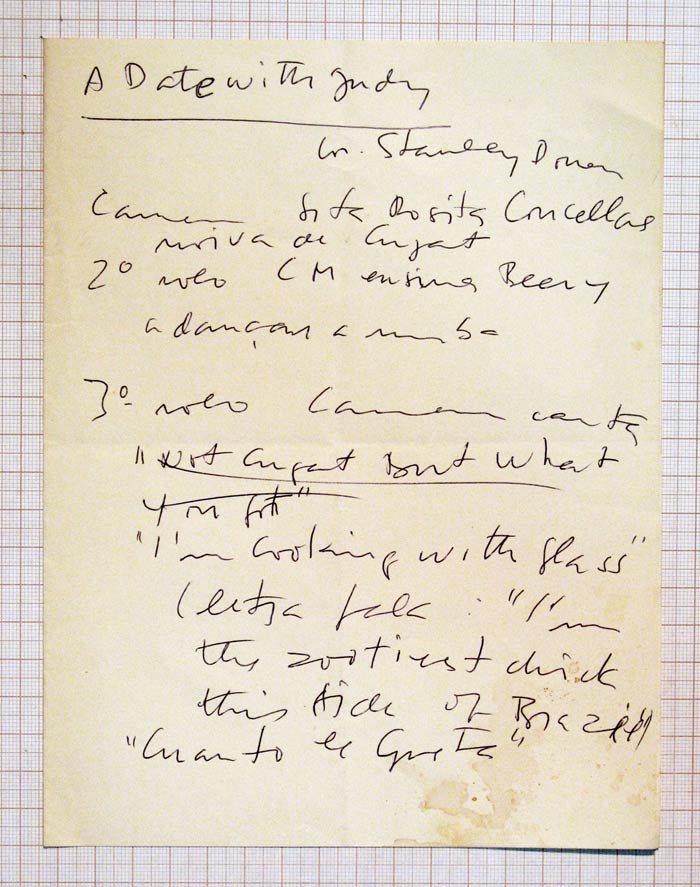 A Date with Judy
cor. Stanley Donen
Carmen Sta Rosita Concellas
noiva de Cugat
2º rolo CM ensina Beery
a dançar a rumba
3º rolo Carmen canta
"Not Cugat But What
You Got"
"I'm Cooking with glass"
(letra fala: "I'm
the zootiest chick
this side of Brazil"
"Cuanto le Gusta"